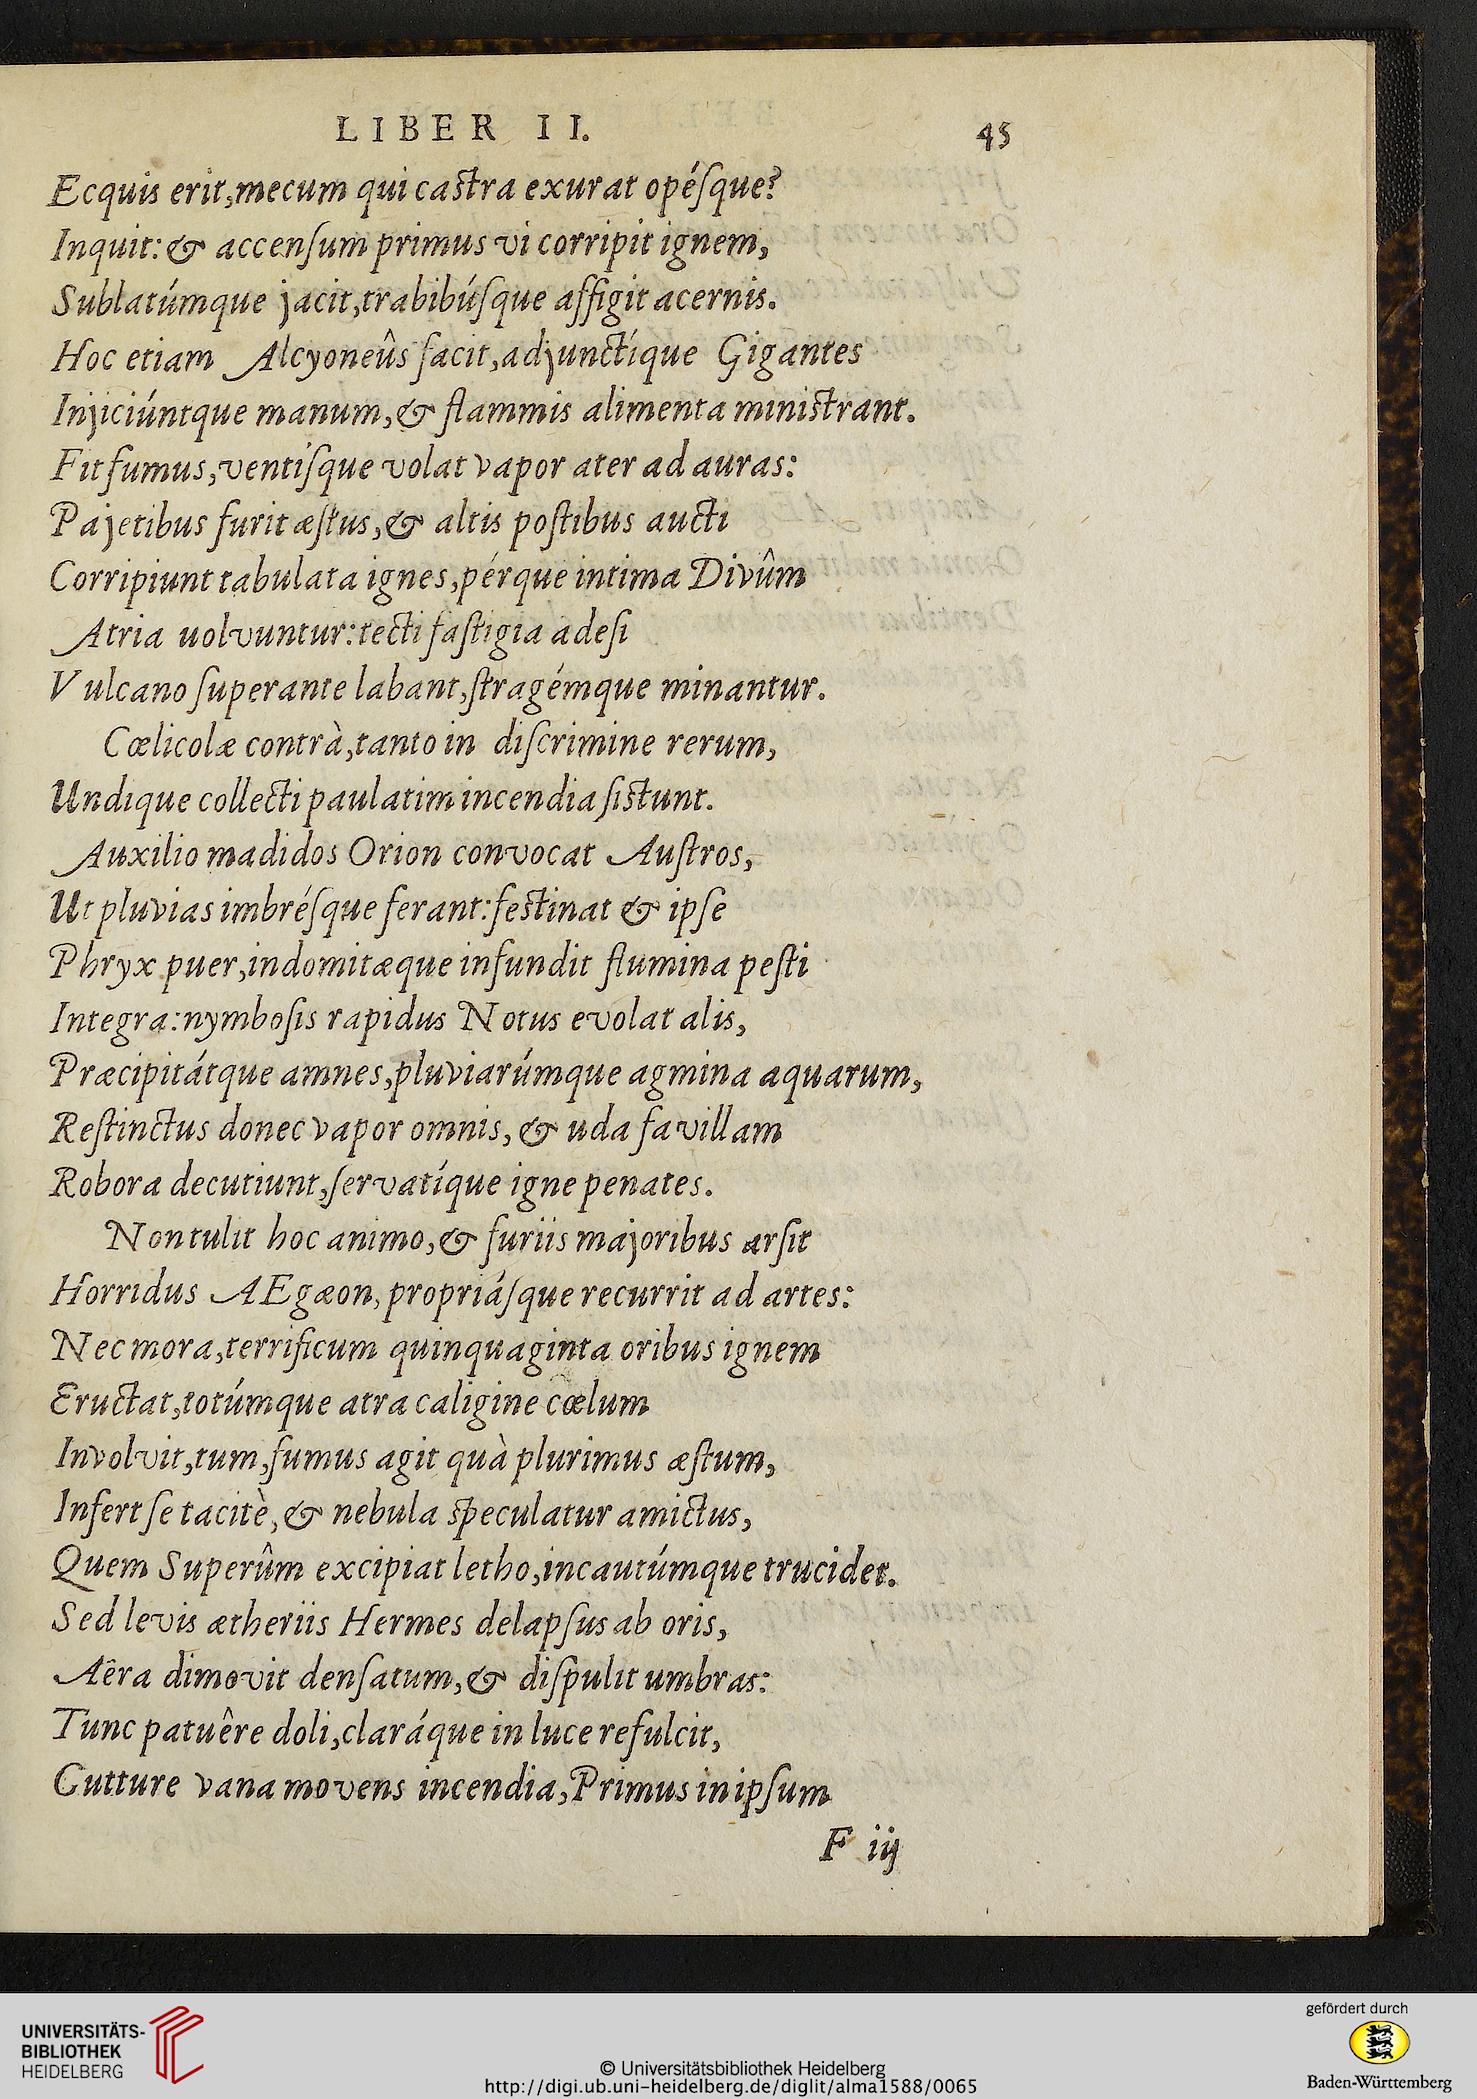 LIBER II. 45
Ecquis erit, mecum qui castra exurat opésque?
Inquit: & accensum primus vi corripit ignem,
Sublatúmque jacit, trabibúsque affigit acernis.
Hoc etiam Alcyoneûs facit, adjunctíque Gigantes
Injiciúntque manum, & flammis alimenta ministrant.
Fit fumus, ventísque volat vapor ater ad auras:
Pajetibus furit æstus, & altis postibus aucti
Corripiunt tabulata ignes, pérque intima Divûm
Atria uolvuntur: tecti fastigia adesi
Vulcano superante labant, stragémque minantur.
Cœlicolæ contrà, tanto in discrimine rerum,
Undique collecti paulatim incendia sistunt.
Auxilio madidos Orion convocat Austros,
Ut pluvias imbrésque ferant: festinat & ipse
Phryx puer, indomitæque infundit flumina pesti
Integra: nymbosis rapidus Notus evolat alis,
Præcipitátque amnes, pluviarúmque agmina aquarum,
Restinctus donec vapor omnis, & uda favillam
Robora decutiunt, servatíque igne penates.
Non tulit hoc animo, & furiis majoribus arsit
Horridus AEgæon, propriásque recurrit ad artes:
Nec mora, terrificum quinquaginta oribus ignem
Eructat, totúmque atra caligine cœlum
Involvit, tum, fumus agit quà plurimus æstum,
Infert se tacitè, & nebula speculatur amictus,
Quem Superûm excipiat letho, incautúmque trucidet.
Sed levis ætheriis Hermes delapsus ab oris,
Aêra dimovit densatum, & dispulit umbras:
Tunc patuêre doli, claráque in luce refulcit,
Gutture vana movens incendia, Primus in ipsum
F iij
UNIVERSITÄTS-
BIBLIOTHEK
HEIDELBERG
© Universitätsbibliothek Heidelberg
http://digi.ub.uni-heidelberg.de/diglit/alma1588/0065
gefördert durch
Baden-Württemberg